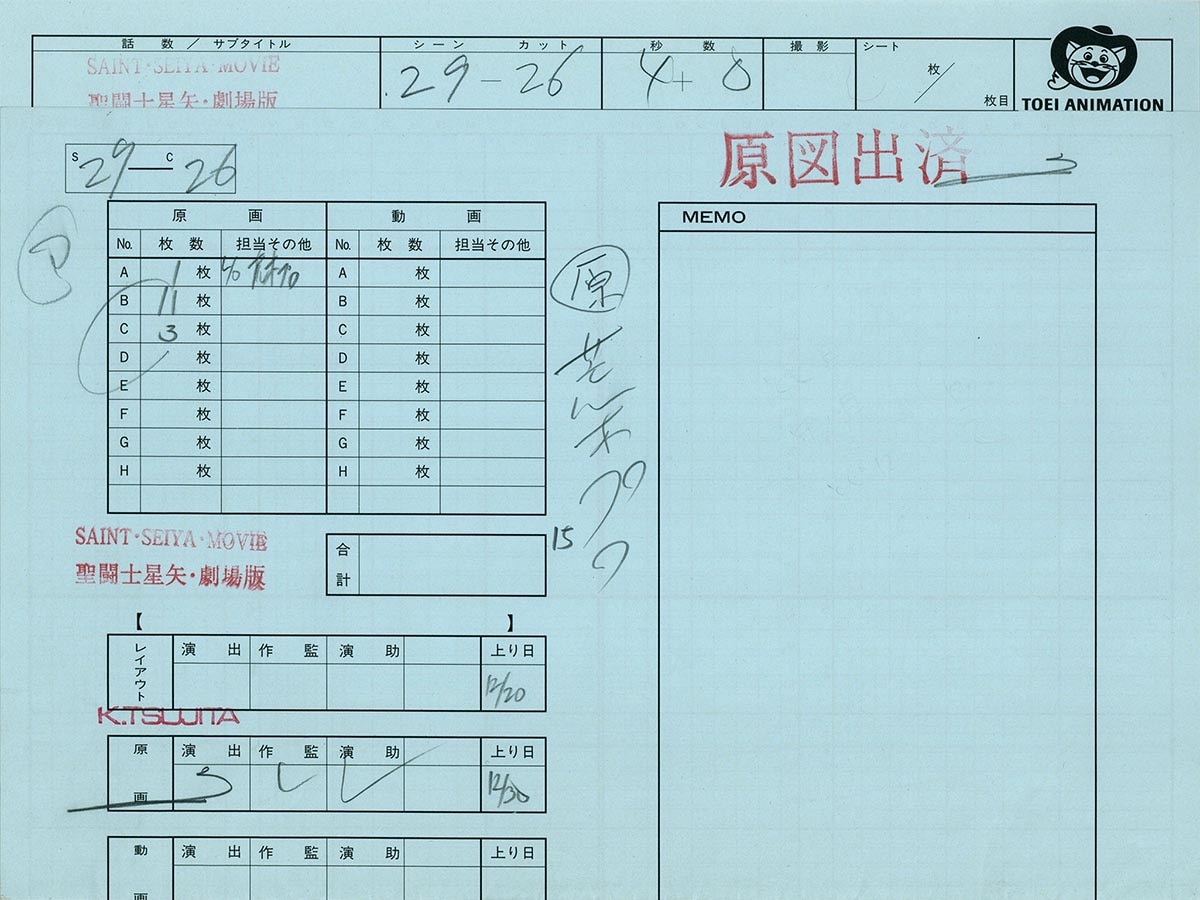 話 数 ／ サブタイトル シーン カット 秒 数 撮 影 シート
SAINT・SEIYA・MOVIE
聖闘士星矢・劇場版
29-26 4+0 枚／ 枚目
TOEI ANIMATION
S 29 — C 26
原図出済
原 画 動 画
No. 枚 数 担当その他 No. 枚 数 担当その他
A 1 枚 A 枚
B 11 枚 B 枚
C 3 枚 C 枚
D 枚 D 枚
E 枚 E 枚
F 枚 F 枚
G 枚 G 枚
H 枚 H 枚
原
MEMO
SAINT・SEIYA・MOVIE
聖闘士星矢・劇場版
合計
15
【 】
レイアウト 演 出 作 監 演 助 上り日
12/20
K.TSUJITA
原画 演 出 作 監 演 助 上り日
12/30
動画 演 出 作 監 演 助 上り日